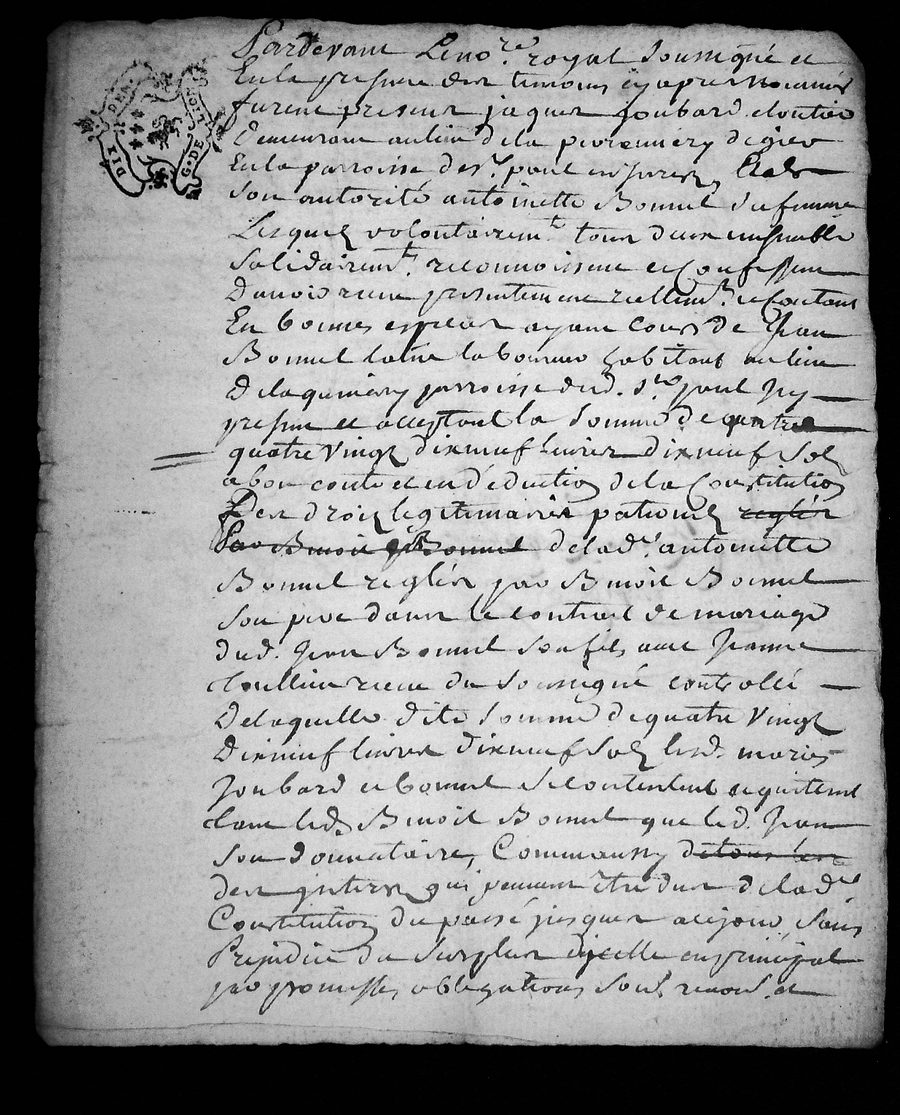 DIX DEN. G. DE LION
Pardevant Le no.re royal Soussigné et
En la presence des temoins cy apres nommés
furent presents jaques Joubard cloutier
Demeurant au lieu de la
En la parroisse de s.t paul en Jarest, Et de
Son autorité antoinette Bonnel sa femme
Lesquels volontairem.t tous deux ensemble
Solidairem.t reconnoissent et Confessent
D'avoir receu presentement reellem.t et Contant
En bonnes especes ayant Cours de Jean
Bonnel laine laboureur habitant au lieu
De la parroisse dud. s.t paul Icy
present et acceptant la Somme de quatre
quatre Vingt dixneuf Livres dixneuf Sols
a bon conte et en déduction de la Constitution
Des droits legitimaires paternels reglés
Par Benoit Bonnel de lad.e antoinette
Bonnel reglés par Benoit Bonnel
Son pere dans le contrat de mariage
dud. Jean Bonnel Son fils avec Jeanne
receu du Soussigné controllé
De laquelle dite Somme de quatre Vingt
Dixneuf livres dixneuf Sols lesd. mariés
Joubard et bonnel Se Contentent et quittent
tant led. Benoit Bonnel que led. Jean
Son donnataire, Comm'aussy de tous les
des interets qui peuvent etre dus de lad.e
Constitution du passé jusques a ce jour, Sans
Prejudice du Surplus d'icelle en principal
par promesses, obligations Soub. renon. et